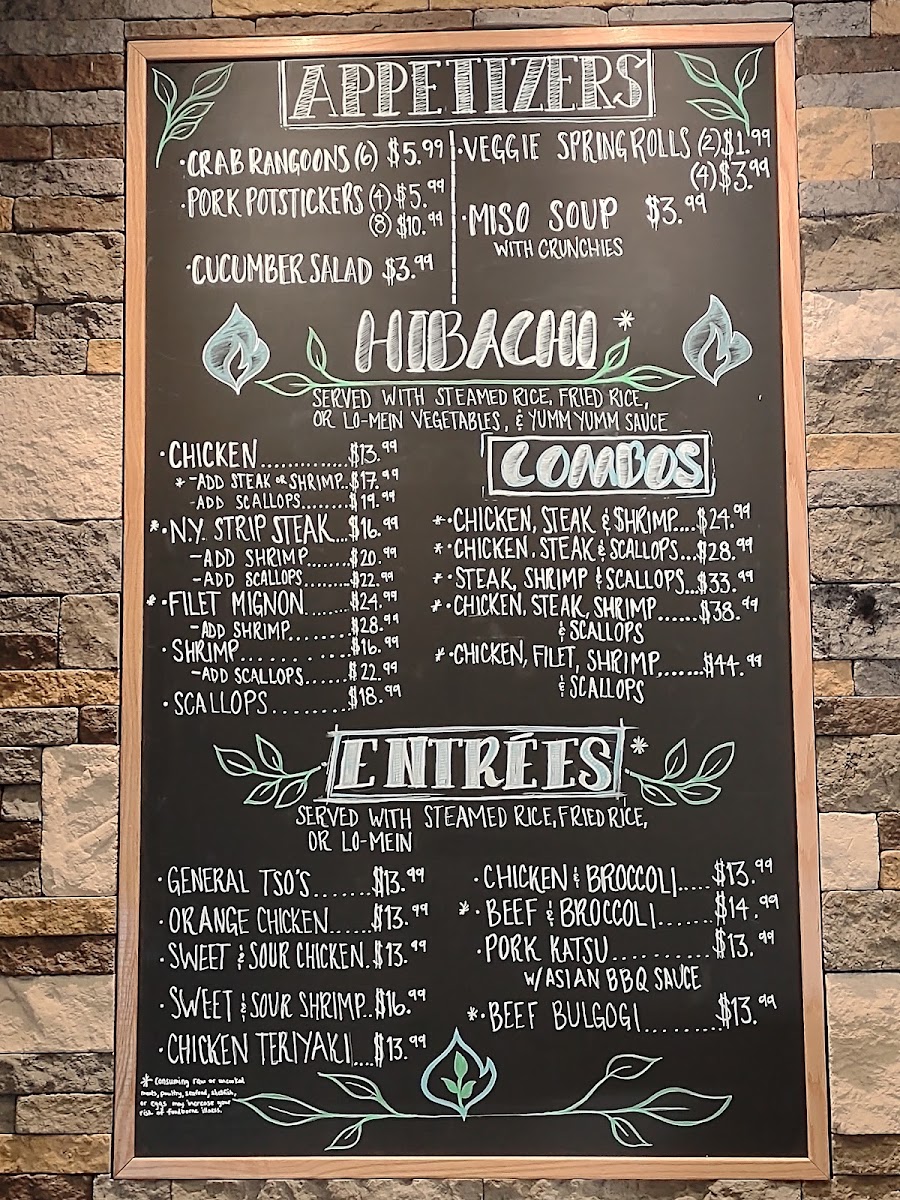 APPETIZERS
·CRAB RANGOONS (6) $5.99
·PORK POTSTICKERS (4) $5.99
(8) $10.99
·CUCUMBER SALAD $3.99
·VEGGIE SPRING ROLLS (2) $1.99
(4) $3.99
·MISO SOUP $3.99
WITH CRUNCHIES
HIBACHI*
SERVED WITH STEAMED RICE, FRIED RICE,
OR LO-MEIN VEGETABLES, & YUMM YUMM SAUCE
·CHICKEN.............$13.99
*-ADD STEAK OR SHRIMP..$17.99
-ADD SCALLOPS.......$19.99
*·N.Y. STRIP STEAK...$16.99
-ADD SHRIMP........$20.99
-ADD SCALLOPS.......$22.99
*·FILET MIGNON.......$24.99
-ADD SHRIMP........$28.99
·SHRIMP............$16.99
-ADD SCALLOPS......$22.99
·SCALLOPS.........$18.99
COMBOS
*·CHICKEN, STEAK & SHRIMP....$24.99
*·CHICKEN, STEAK & SCALLOPS...$28.99
*·STEAK, SHRIMP & SCALLOPS...$33.99
*·CHICKEN, STEAK, SHRIMP......$38.99
& SCALLOPS
*·CHICKEN, FILET, SHRIMP.......$44.99
& SCALLOPS
ENTRÉES*
SERVED WITH STEAMED RICE, FRIED RICE,
OR LO-MEIN
·GENERAL TSO'S.......$13.99
·ORANGE CHICKEN.....$13.99
·SWEET & SOUR CHICKEN.$13.99
·SWEET & SOUR SHRIMP..$16.99
·CHICKEN TERIYAKI...$13.99
·CHICKEN & BROCCOLI.....$13.99
*·BEEF & BROCCOLI.......$14.99
·PORK KATSU...........$13.99
W/ASIAN BBQ SAUCE
*·BEEF BULGOGI........$13.99
* Consuming raw or uncooked
meats, poultry, seafood, shellfish,
or eggs may increase your
risk of foodborne illness.